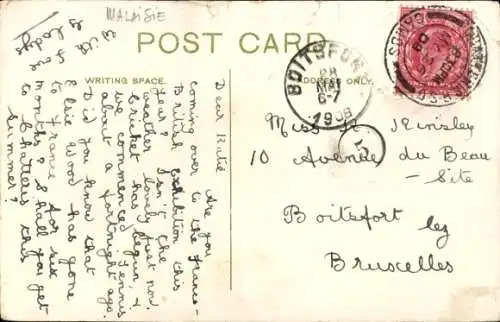 MALAISIE
POST CARD
WRITING SPACE.
ADDRESS ONLY.
Dear Katie
Are you
coming over to the Franco-
British Exhibition this
year? Isn't the
weather lovely just now.
Cricket has begun, &
we commenced Tennis
about a fortnight ago.
Did you know that
Elsie Wood has gone
to France for six
months? Shall you get
to Chatteris this
summer?
With love
BOITSFORT
28
MAI
6-7
1908
5
Miss K. Kinsley
10 Avenue du Beau
- Site
Boitefort lez
Bruxelles